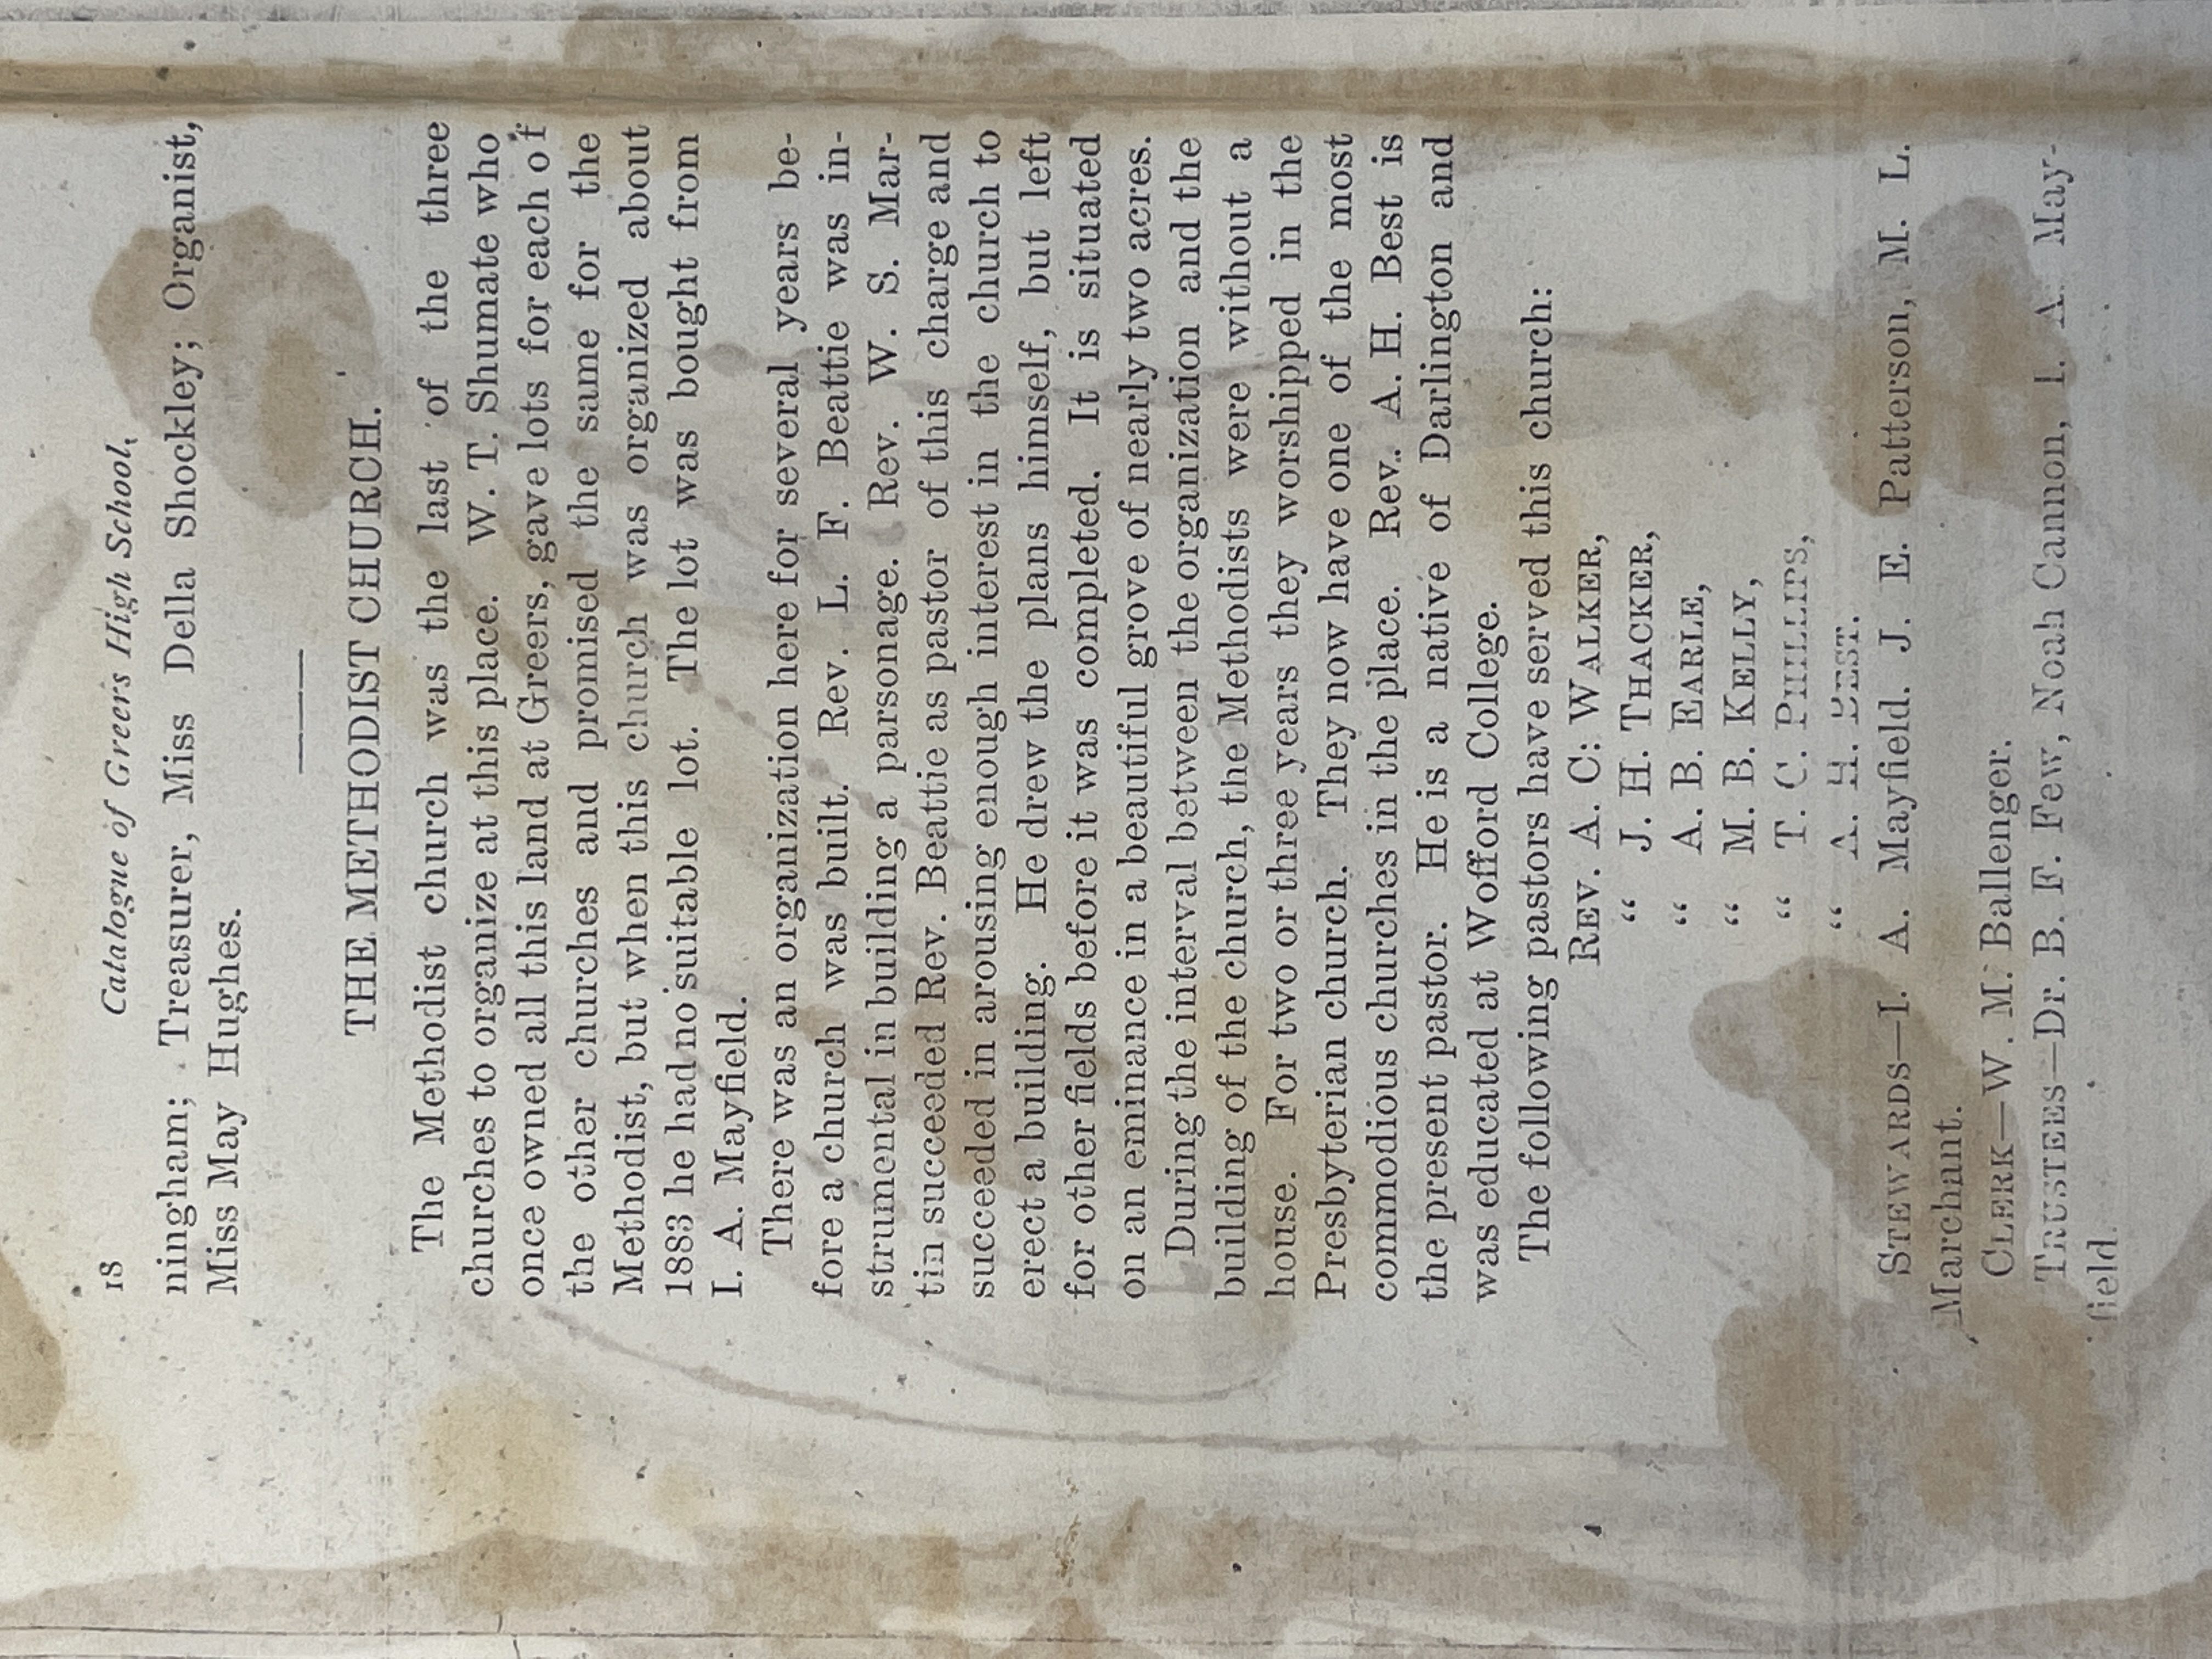 18 Catalogue of Greers High School,
ningham; Treasurer, Miss Della Shockley; Organist,
Miss May Hughes.
THE METHODIST CHURCH.
The Methodist church was the last of the three
churches to organize at this place. W. T. Shumate who
once owned all this land at Greers, gave lots for each of
the other churches and promised the same for the
Methodist, but when this church was organized about
1883 he had no suitable lot. The lot was bought from
I. A. Mayfield.
There was an organization here for several years be-
fore a church was built. Rev. L. F. Beattie was in-
strumental in building a parsonage. Rev. W. S. Mar-
tin succeeded Rev. Beattie as pastor of this charge and
succeeded in arousing enough interest in the church to
erect a building. He drew the plans himself, but left
for other fields before it was completed. It is situated
on an eminance in a beautiful grove of nearly two acres.
During the interval between the organization and the
building of the church, the Methodists were without a
house. For two or three years they worshipped in the
Presbyterian church. They now have one of the most
commodious churches in the place. Rev. A. H. Best is
the present pastor. He is a native of Darlington and
was educated at Wofford College.
The following pastors have served this church:
REV. A. C: WALKER,
“ J. H. THACKER,
“ A. B. EARLE,
“ M. B. KELLY,
“ T. C. PHILLIPS,
“ A. H. BEST.
STEWARDS—I. A. Mayfield. J. E. Patterson, M. L.
Marchant.
CLERK—W. M. Ballenger.
TRUSTEES—Dr. B. F. Few, Noah Cannon, I. A. May-
field.